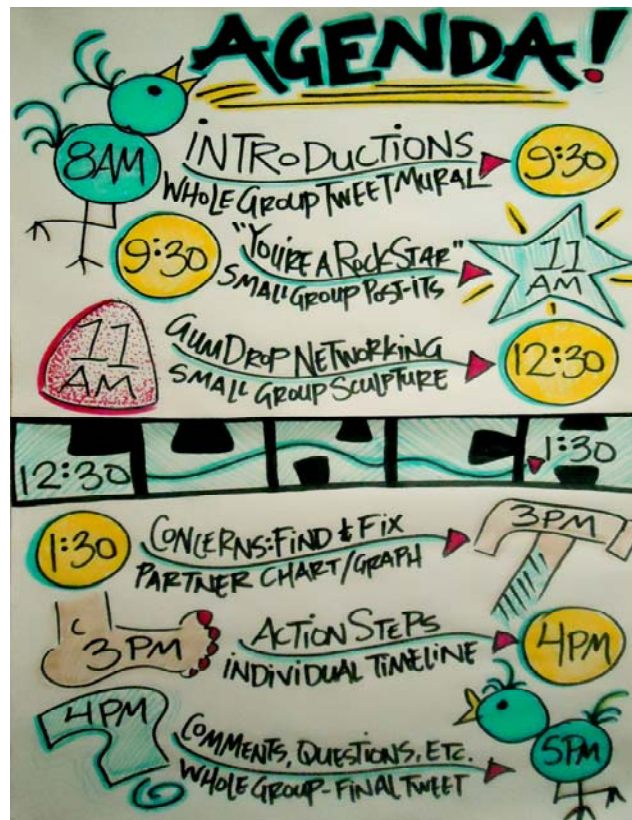 AGENDA!
8AM INTRODUCTIONS 9:30
WHOLE GROUP TWEET MURAL
9:30 "YOU'RE A ROCK STAR" 11 AM
SMALL GROUP POST-ITS
11 AM GUMDROP NETWORKING 12:30
SMALL GROUP SCULPTURE
LUNCH
12:30 1:30
1:30 CONCERNS: FIND & FIX 3PM
PARTNER CHART/GRAPH
3PM ACTION STEPS 4PM
INDIVIDUAL TIMELINE
4PM COMMENTS, QUESTIONS, ETC. 5PM
WHOLE GROUP - FINAL TWEET